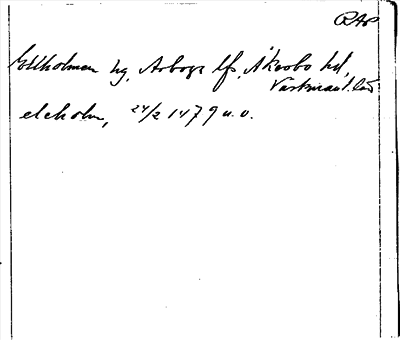 RAp
Ellholmen hg, Arboga lfs, Åkerbo hd,
Västmanl. län
elcholm, 24/2 1479 u. o.